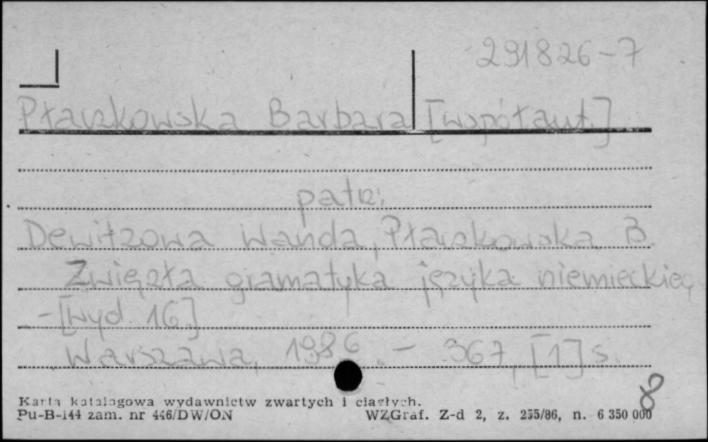 291826-7
Płaczkowska Barbara [współaut.]
patrz:
Dewitzowa Wanda, Płaczkowska B.
Zwięzła gramatyka języka niemieckieg
-[wyd. 16]
Warszawa, 1986. - 367, [1] s.
8
Karta katalogowa wydawnictw zwartych i ciągłych.
Pu-B-144 zam. nr 446/DW/ON WZGraf. Z-d 2, z. 255/86, n. 6 350 000